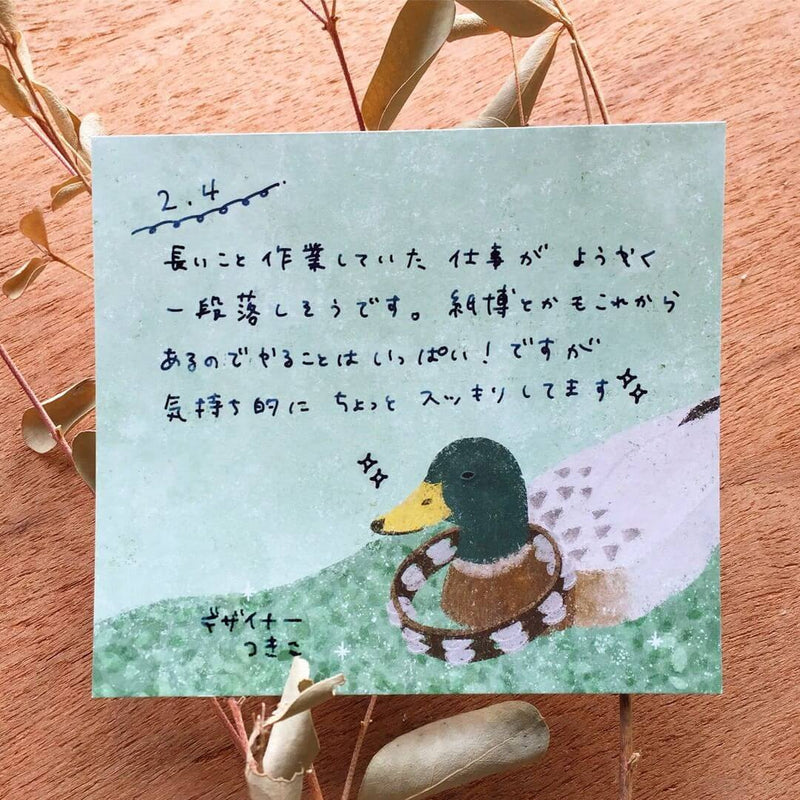 2.4
長いこと作業していた仕事がようやく
一段落しそうです。紙博とかもこれから
あるのでやることはいっぱい!ですが
気持ち的にちょっとスッキリしてます
デザイナー
つきこ